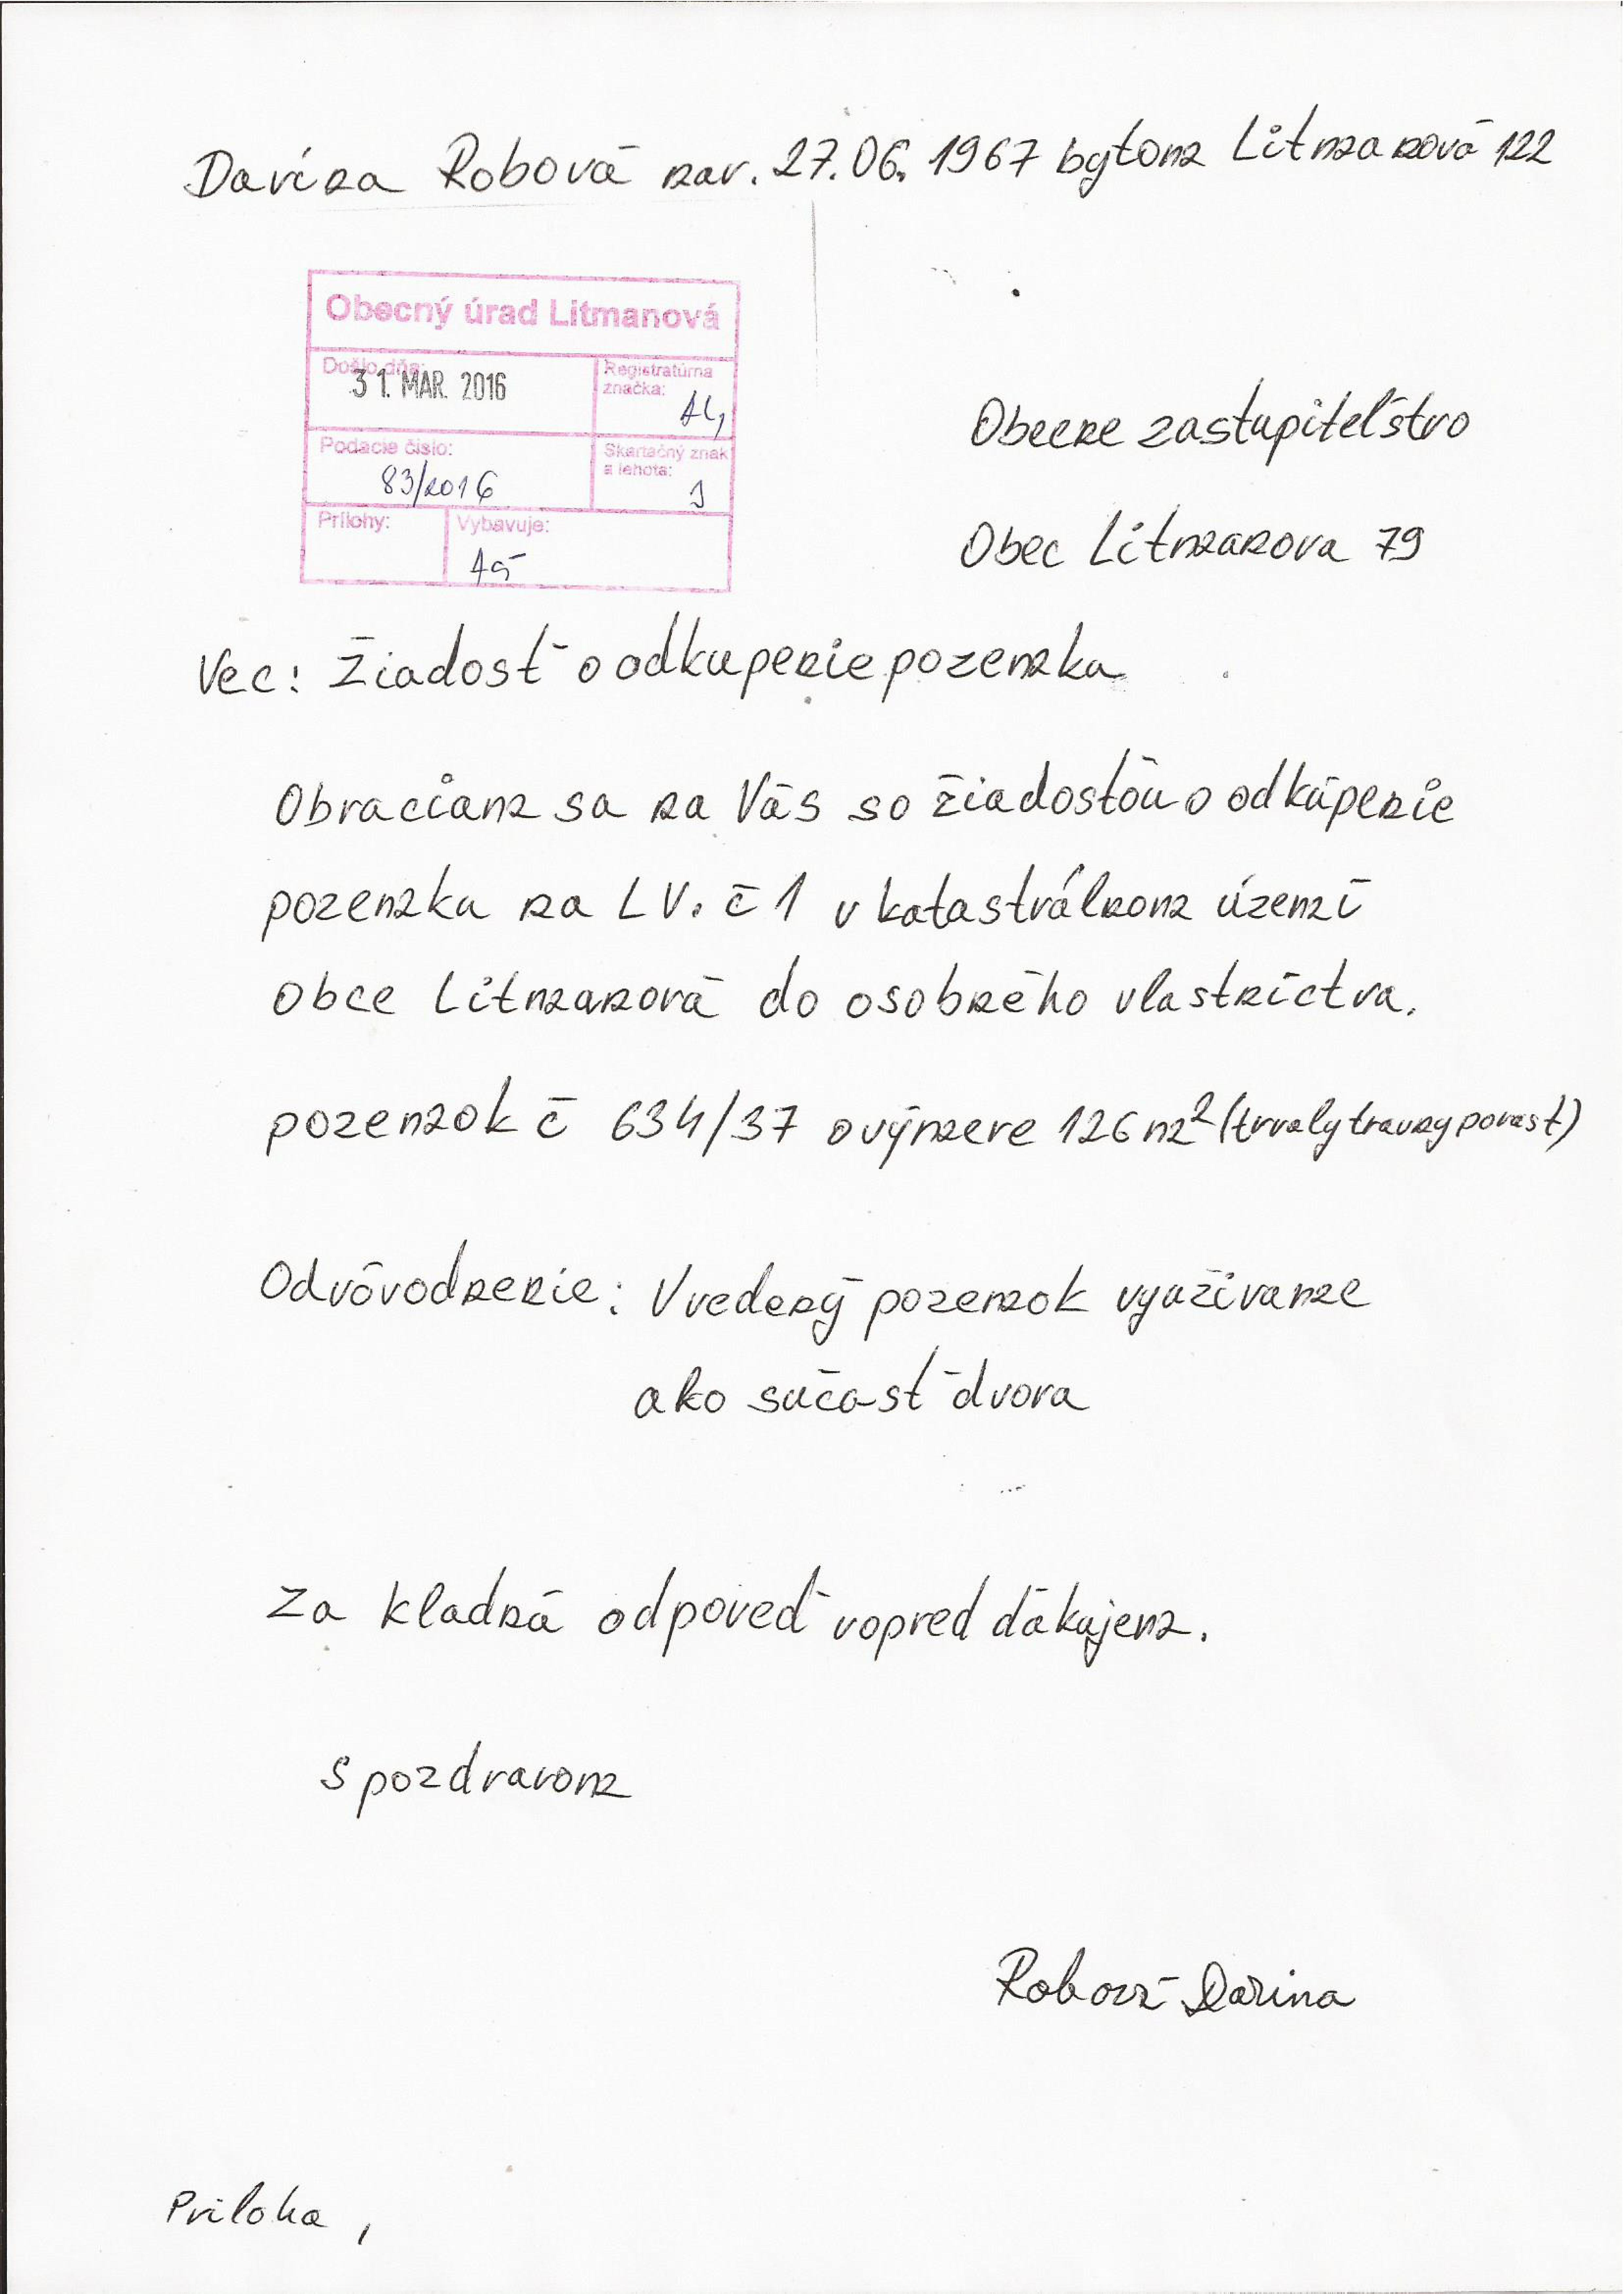 Darina Robová nar. 27.06.1967 bytom Litmanová 122
Obecný úrad Litmanová
Došlo dňa:
31. MAR. 2016
Registratúrna
značka:
Podacie číslo:
83/2016
Skartačný znak
a lehota:
Prílohy:
Vybavuje:
Obecne zastupiteľstvo
Obec Litmanova 79
Vec: Žiadosť o odkupenie pozemku
Obraciam sa na Vás so žiadosťou o odkúpenie
pozemku na LV. č 1 v katastrálnom území
Obce Litmanová do osobného vlastníctva.
pozemok č 634/37 o výmere 126 m² (trvalý travny porast)
Odvôvodnenie: Vvedený pozemok využívame
ako súčasť dvora
Za kladnú odpoveď vopred ďakujem.
S pozdravom
Robová Darina
Priloha,